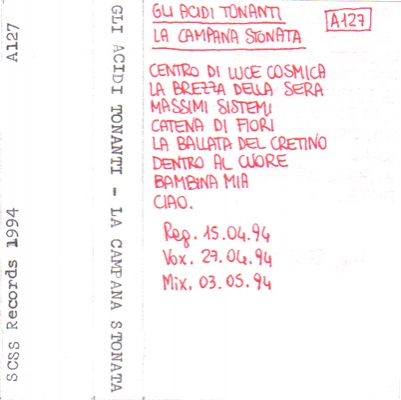 SCSS Records 1994 A127
GLI ACIDI TONANTI - LA CAMPANA STONATA
GLI ACIDI TONANTI
LA CAMPANA STONATA
A127
CENTRO DI LUCE COSMICA
LA BREZZA DELLA SERA
MASSIMI SISTEMI
CATENA DI FIORI
LA BALLATA DEL CRETINO
DENTRO AL CUORE
BAMBINA MIA
CIAO.
Reg. 15.04.94
Vox. 27.04.94
Mix. 03.05.94